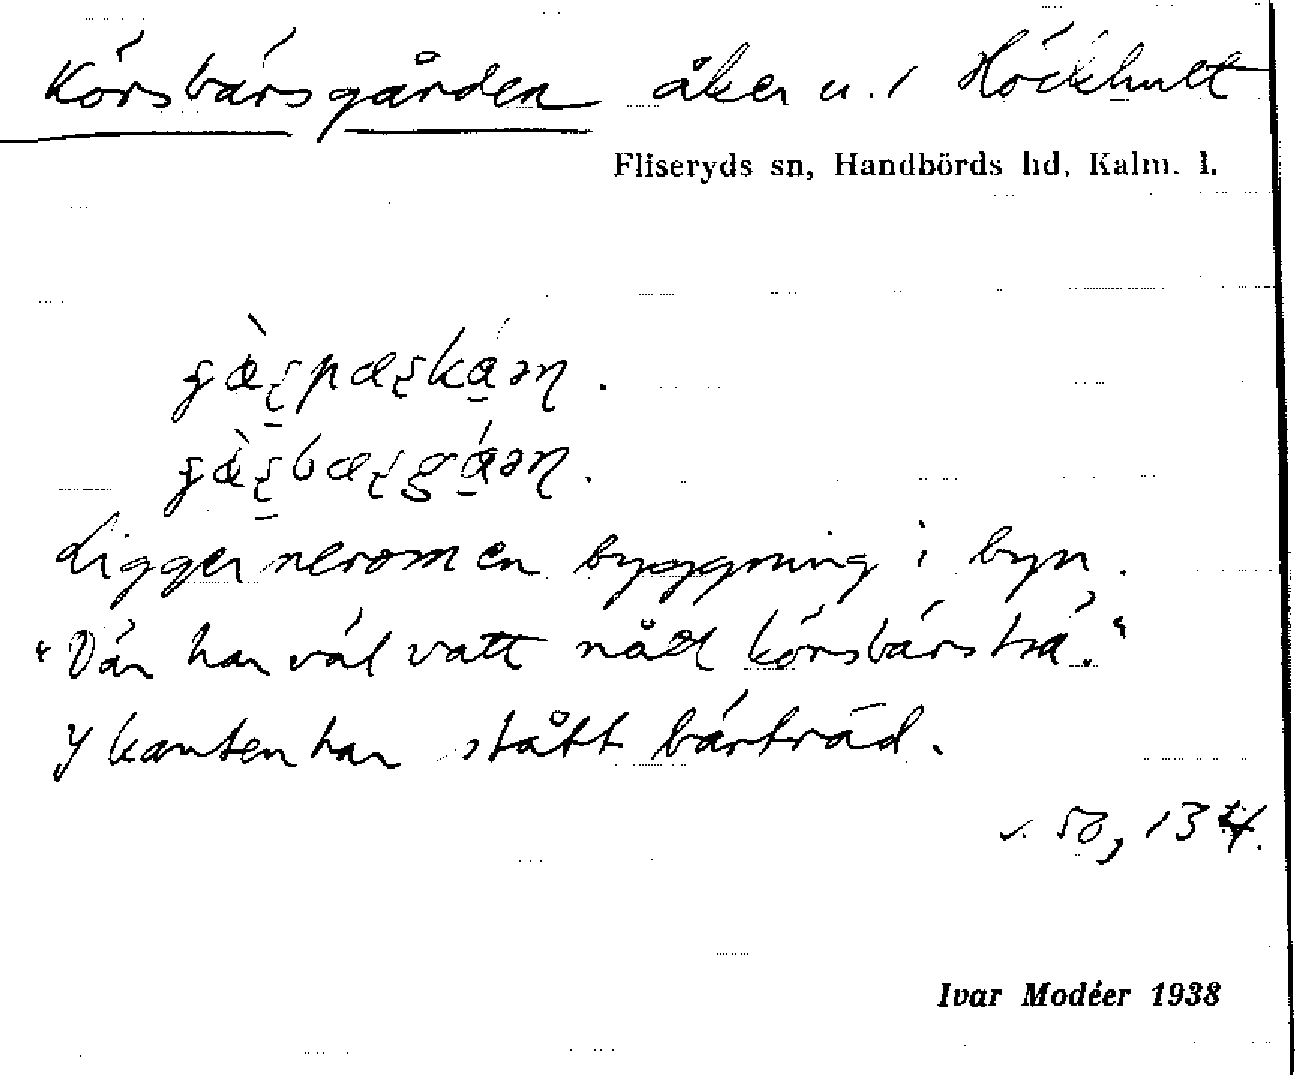 Körsbärsgården åker u. 1 Höckhult
Fliseryds sn, Handbörds hd, Kalm. l.
Ligger nerom en byggning i byn.
"Där har väl vatt nått körsbärsträ."
I kanten har stått bärträd.
v. 50, 134.
Ivar Modéer 1938